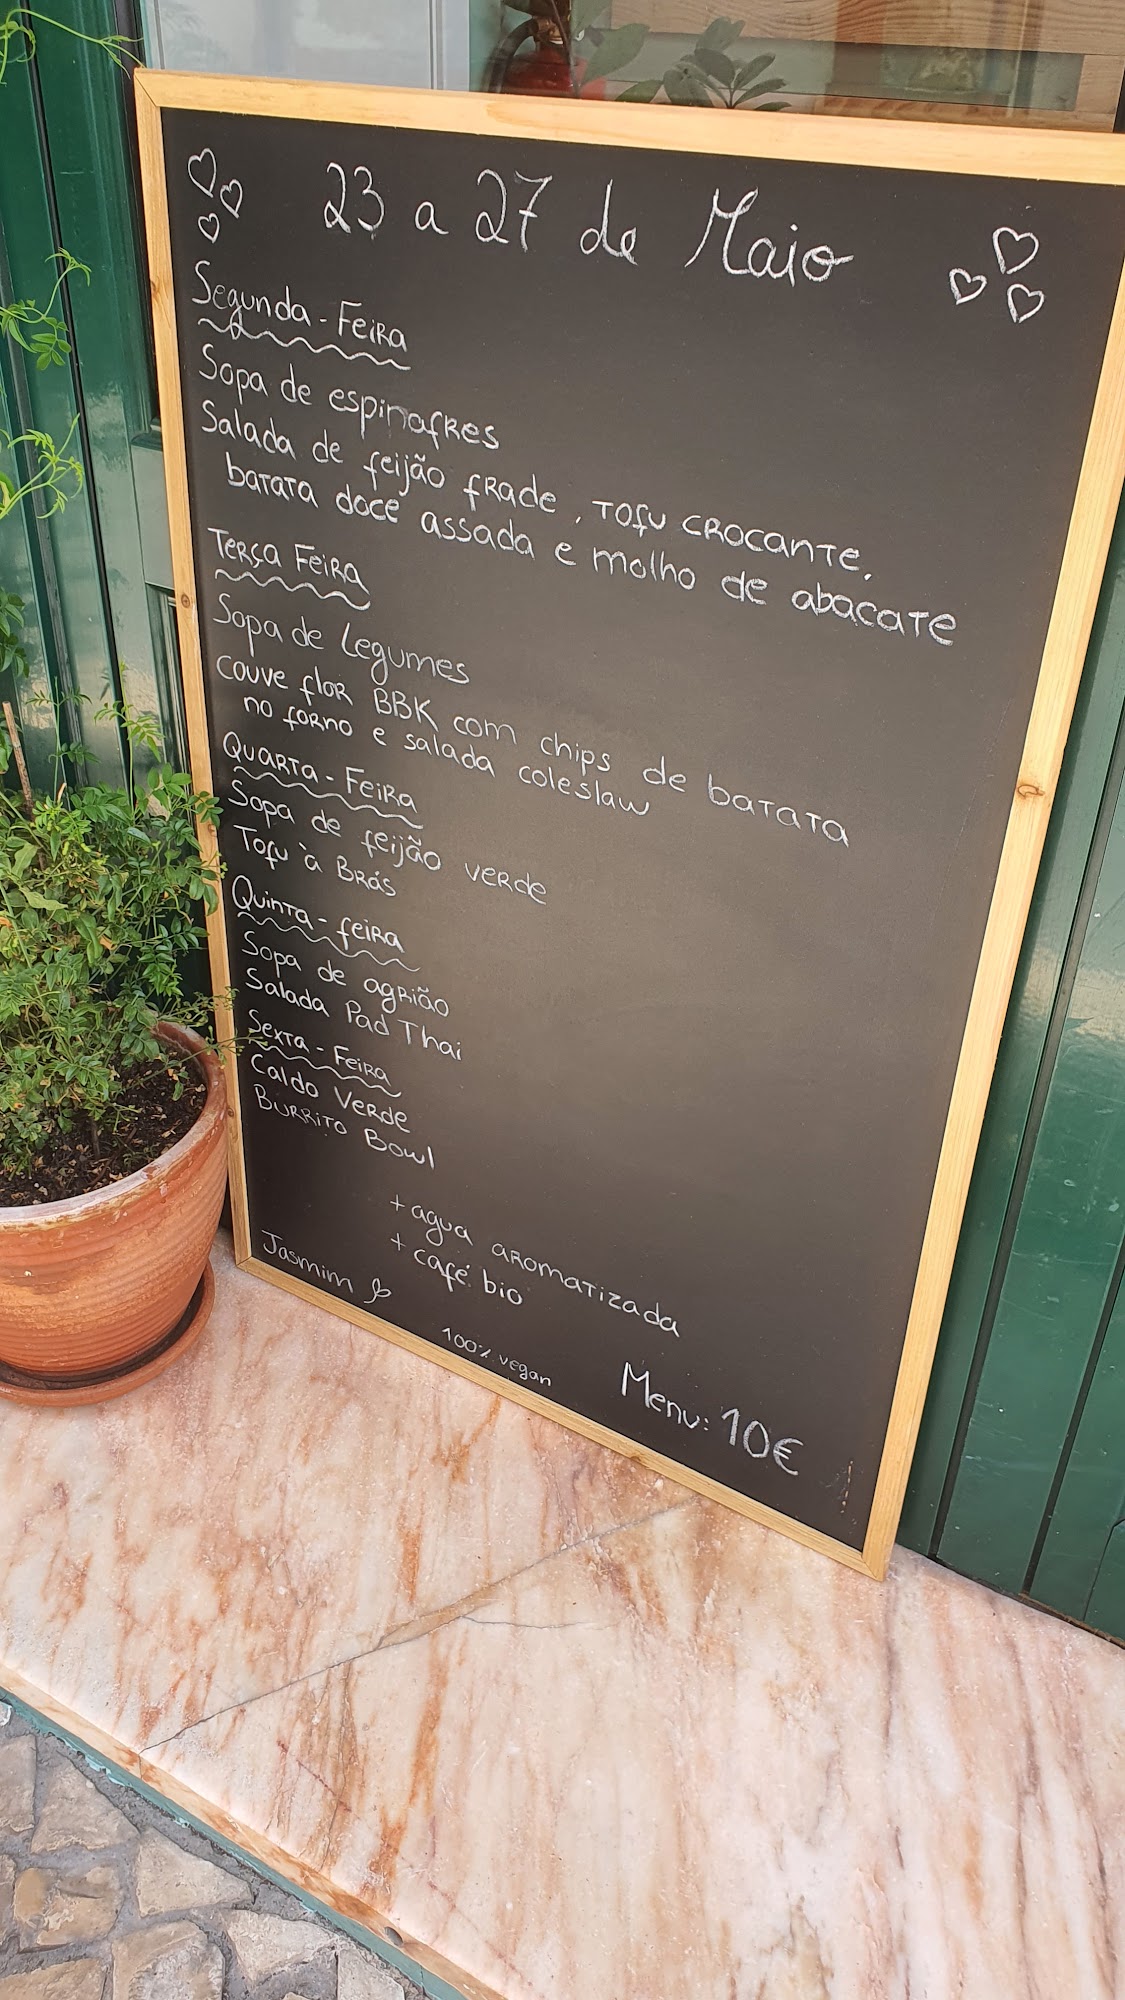 23 a 27 de Maio
Segunda-Feira
Sopa de espinafres
Salada de feijão frade, Tofu crocante,
batata doce assada e molho de abacate
Terça Feira
Sopa de Legumes
Couve flor BBK com chips de batata
no forno e salada coleslaw
Quarta-Feira
Sopa de feijão verde
Tofu à Brás
Quinta-feira
Sopa de agrião
Salada Pad Thai
Sexta-Feira
Caldo Verde
Burrito Bowl
+ agua aromatizada
+ café bio
Jasmim
100% vegan
Menu: 10€